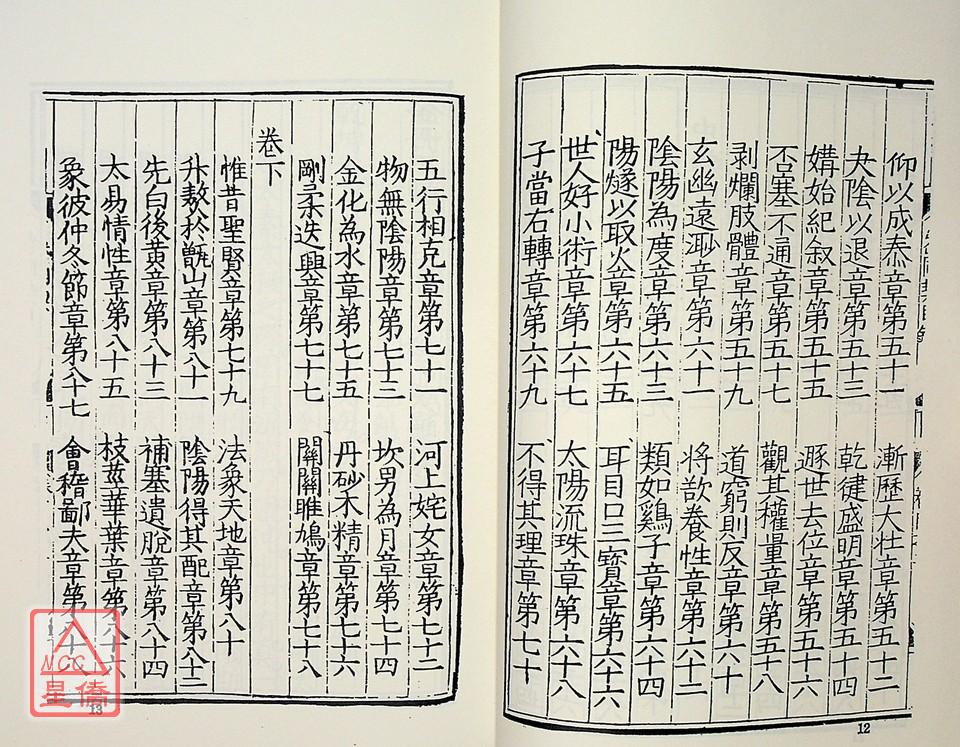 仰以成泰章第五十一　漸歷大壯章第五十二
夬陰以退章第五十三　乾健盛明章第五十四
媾始紀叙章第五十五　遯世去位章第五十六
否塞不通章第五十七　觀其權量章第五十八
剥爛肢體章第五十九　道窮則反章第六十
玄幽遠渺章第六十一　將欲養性章第六十二
陰陽為度章第六十三　類如雞子章第六十四
陽燧以取火章第六十五　耳目口三寳章第六十六
世人好小術章第六十七　太陽流珠章第六十八
子當右轉章第六十九　不得其理章第七十
12
五行相克章第七十一　河上姹女章第七十二
物無陰陽章第七十三　坎男為月章第七十四
金化為水章第七十五　丹砂木精章第七十六
剛柔迭興章第七十七　關關雎鳩章第七十八
卷下
惟昔聖賢章第七十九　法象天地章第八十
升熬於甑山章第八十一　陰陽得其配章第八十二
先白後黄章第八十三　補塞遺脫章第八十四
太易情性章第八十五　枝莖華葉章第八十六
象彼仲冬節章第八十七　會稽鄙夫章第八十八
13
NCC
星僑